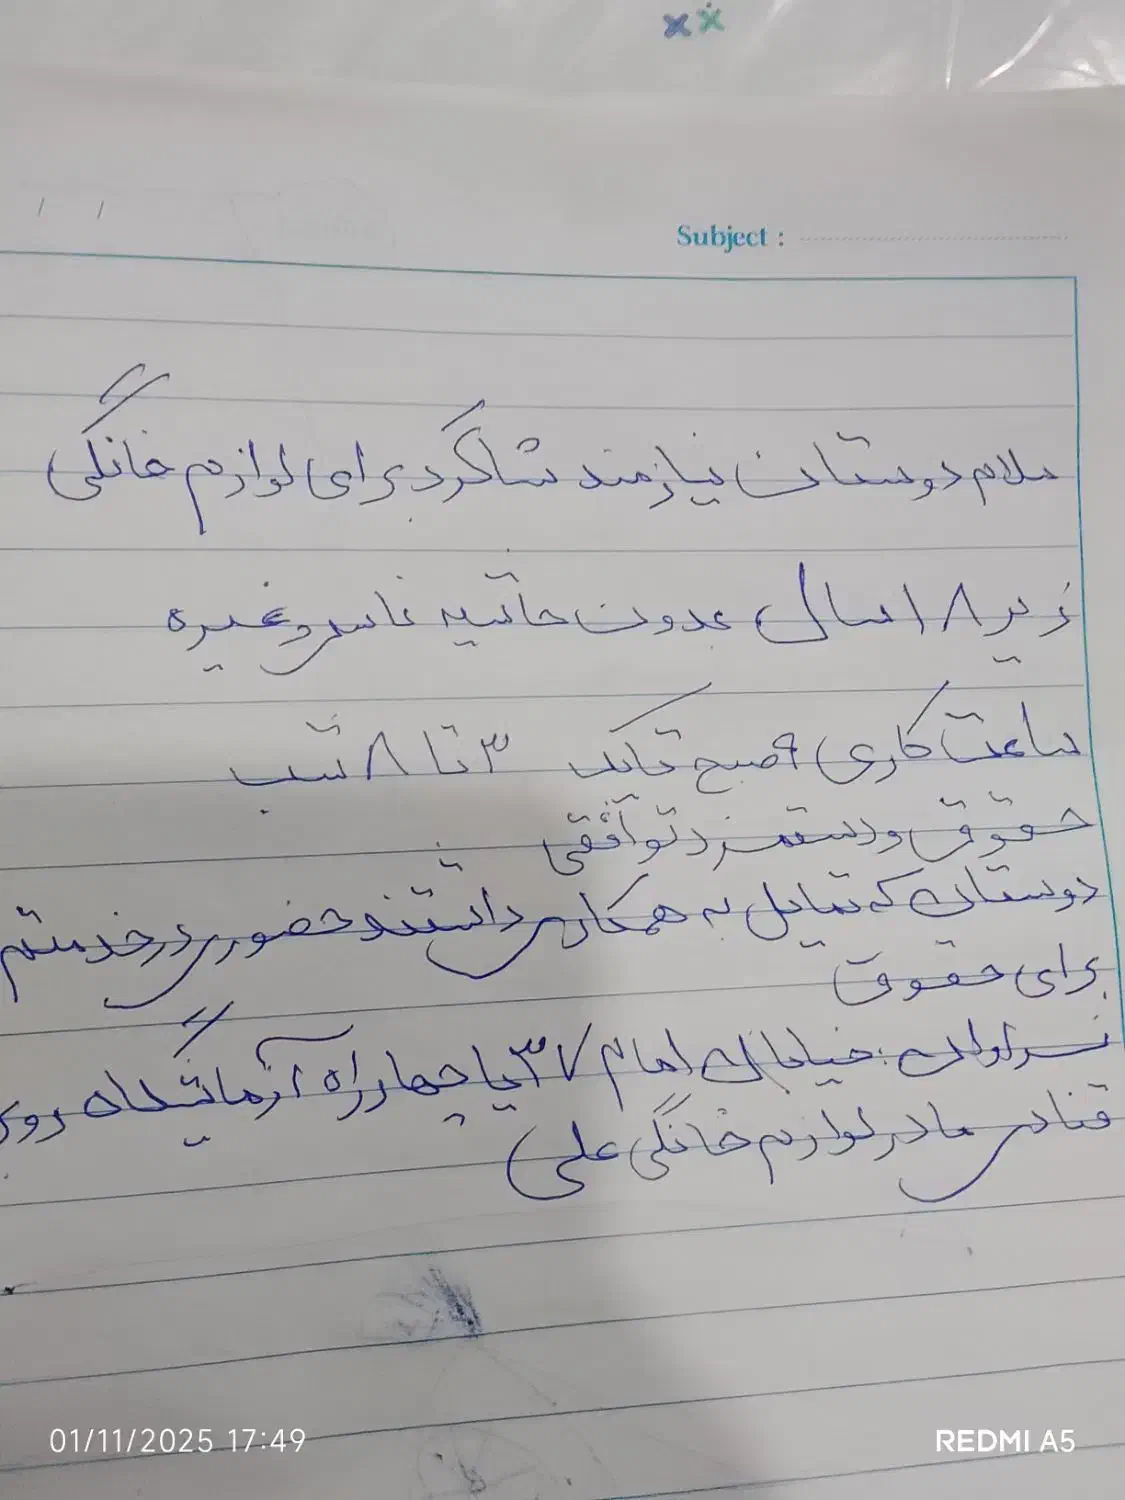 Subject :
سلام دوستان نیازمند شاگرد برای لوازم خانگی
زیر ۱۸ سال بدون حاشیه تماس وغیره
ساعت کاری ۹ صبح تا یک ۳ تا ۸ شب
حقوق و دستمزد توافقی
دوستان که تمایل به همکاری داشتند حضوری در خدمتم
برای حقوق
نسراوان: خیابان امام ۳۷ یا چهارراه آزمایشگاه روی
قنادی مادر لوازم خانگی علی
01/11/2025 17:49
REDMI A5